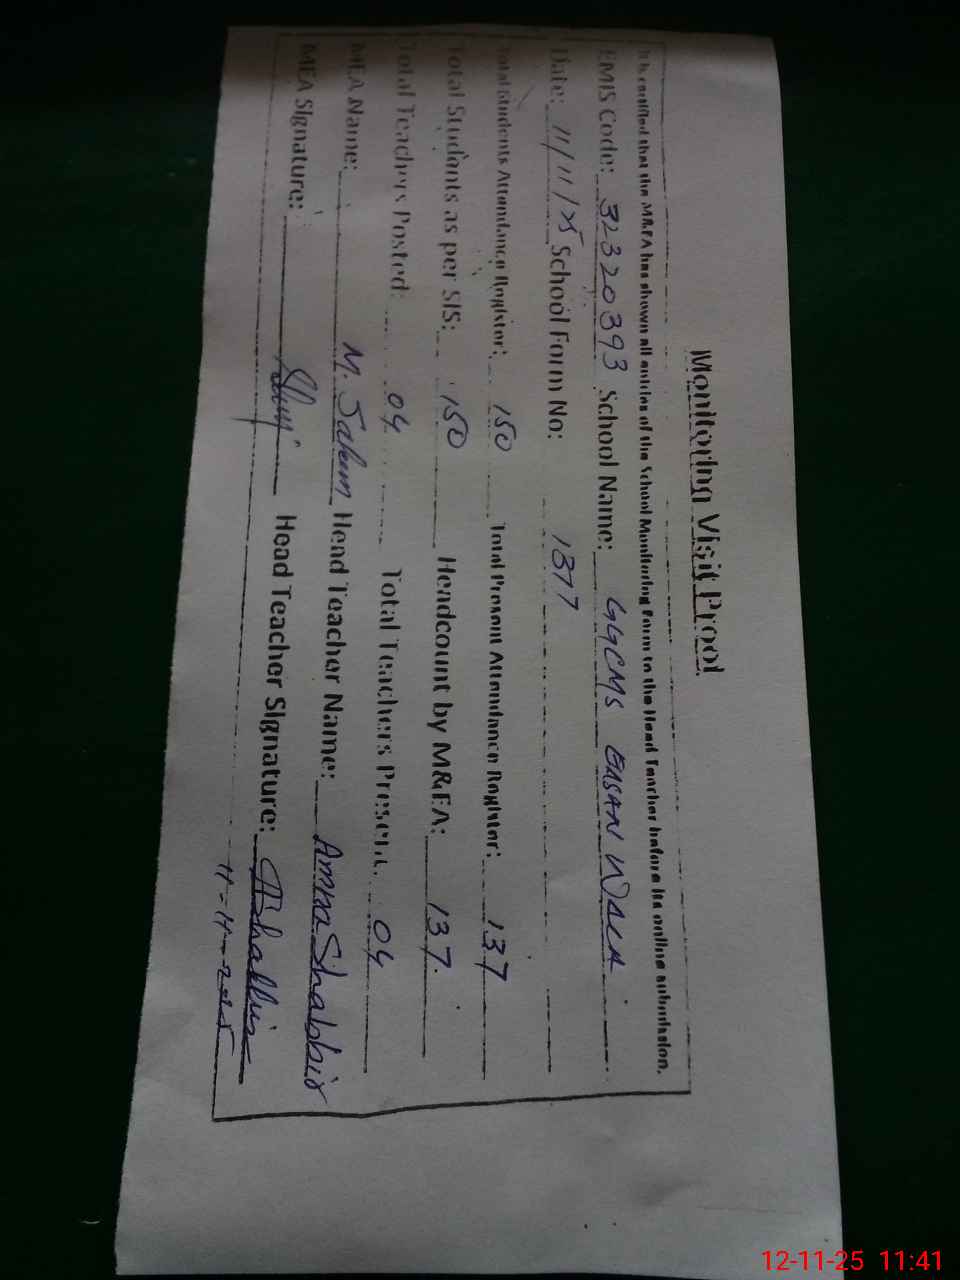 Monitoring Visit Proof
It is certified that the M&EA has shown all entries of the School Monitoring Form to the Head Teacher before its online submission.
EMIS Code: 32320393 School Name: GGCMS EHSAN WALA
Date: 11/11/25 School Form No: 1377
Total Students Attendance Register: 150 Total Present Attendance Register: 137
Total Students as per SIS: 150 Headcount by M&EA: 137.
Total Teachers Posted: 04 Total Teachers Present: 04
MEA Name: M. Saleem Head Teacher Name: Amna Shabbir
MEA Signature: Head Teacher Signature: AShabbir
11-11-2025
12-11-25 11:41